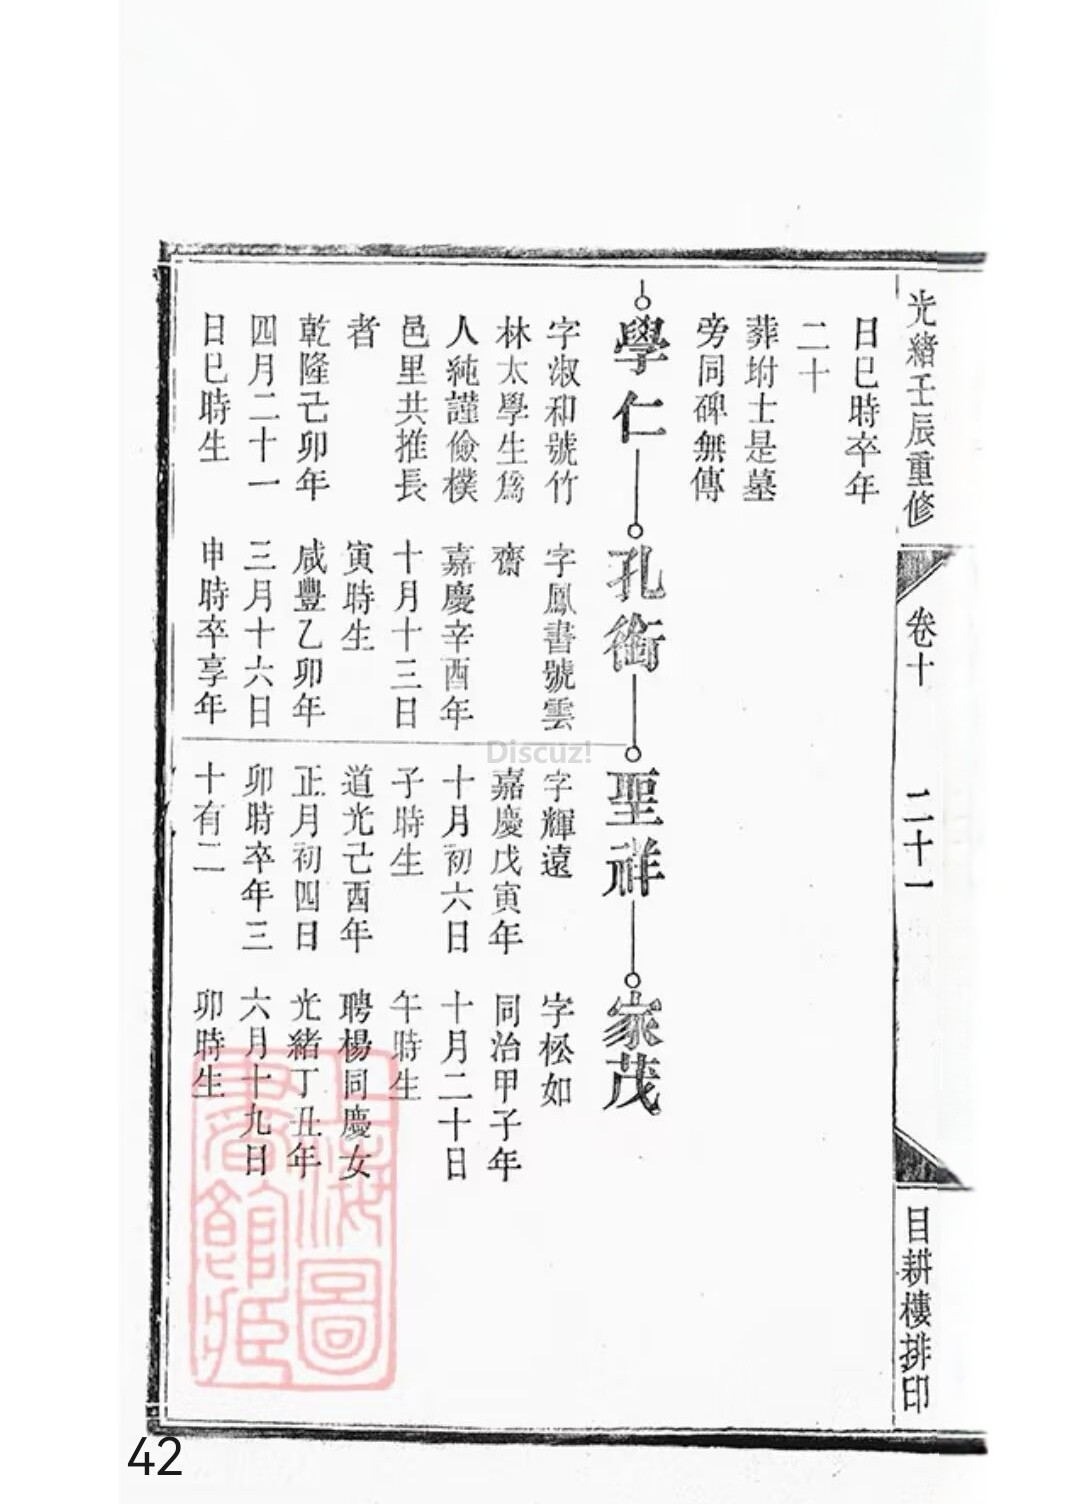 光緒壬辰重修
卷十
二十一
目耕樓排印
日巳時卒年
二十
葬坿士是墓
旁同碑無傳
學仁
字淑和號竹
林太學生爲
人純謹儉樸
邑里共推長
者
乾隆己卯年
四月二十一
日巳時生
孔銜
字鳳書號雲
齋
嘉慶辛酉年
十月十三日
寅時生
咸豐乙卯年
三月十六日
申時卒享年
聖祥
字輝遠
嘉慶戊寅年
十月初六日
子時生
道光己酉年
正月初四日
卯時卒年三
十有二
家茂
字松如
同治甲子年
十月二十日
午時生
聘楊同慶女
光緒丁丑年
六月十九日
卯時生
上海圖
書館藏
Discuz!
42